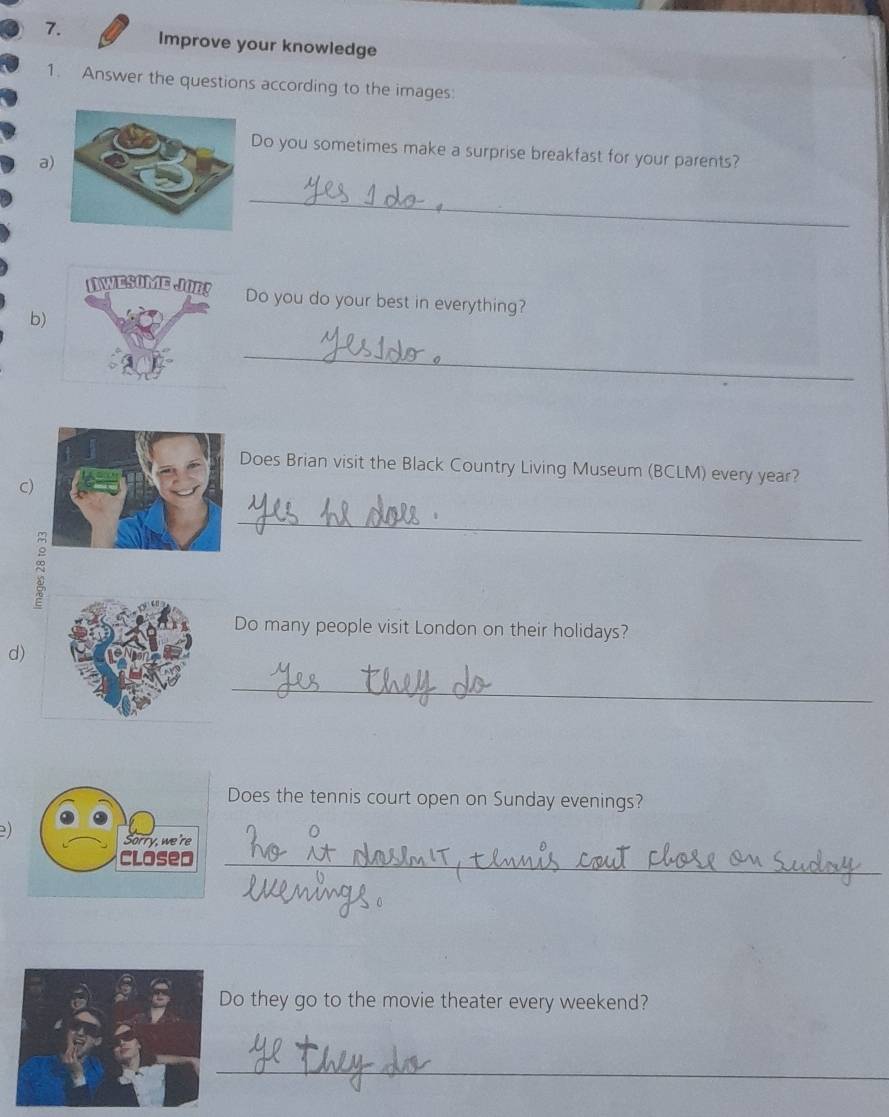 7.
Improve your knowledge
1. Answer the questions according to the images:
a)
Do you sometimes make a surprise breakfast for your parents?
yes I do.
AWESOME JOB!
b)
Do you do your best in everything?
yes I do.
c)
Does Brian visit the Black Country Living Museum (BCLM) every year?
yes he does.
Images 28 to 33
d)
LONDON
Do many people visit London on their holidays?
yes they do
e)
Sorry, we're
CLOSED
Does the tennis court open on Sunday evenings?
no it doesn't, tennis cout chose on Suday
evenings.
Do they go to the movie theater every weekend?
ye they do